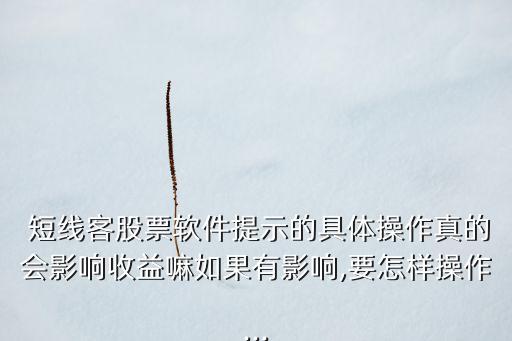 短线客股票软件提示的具体操作真的
会影响收益嘛如果有影响,要怎样操作
...